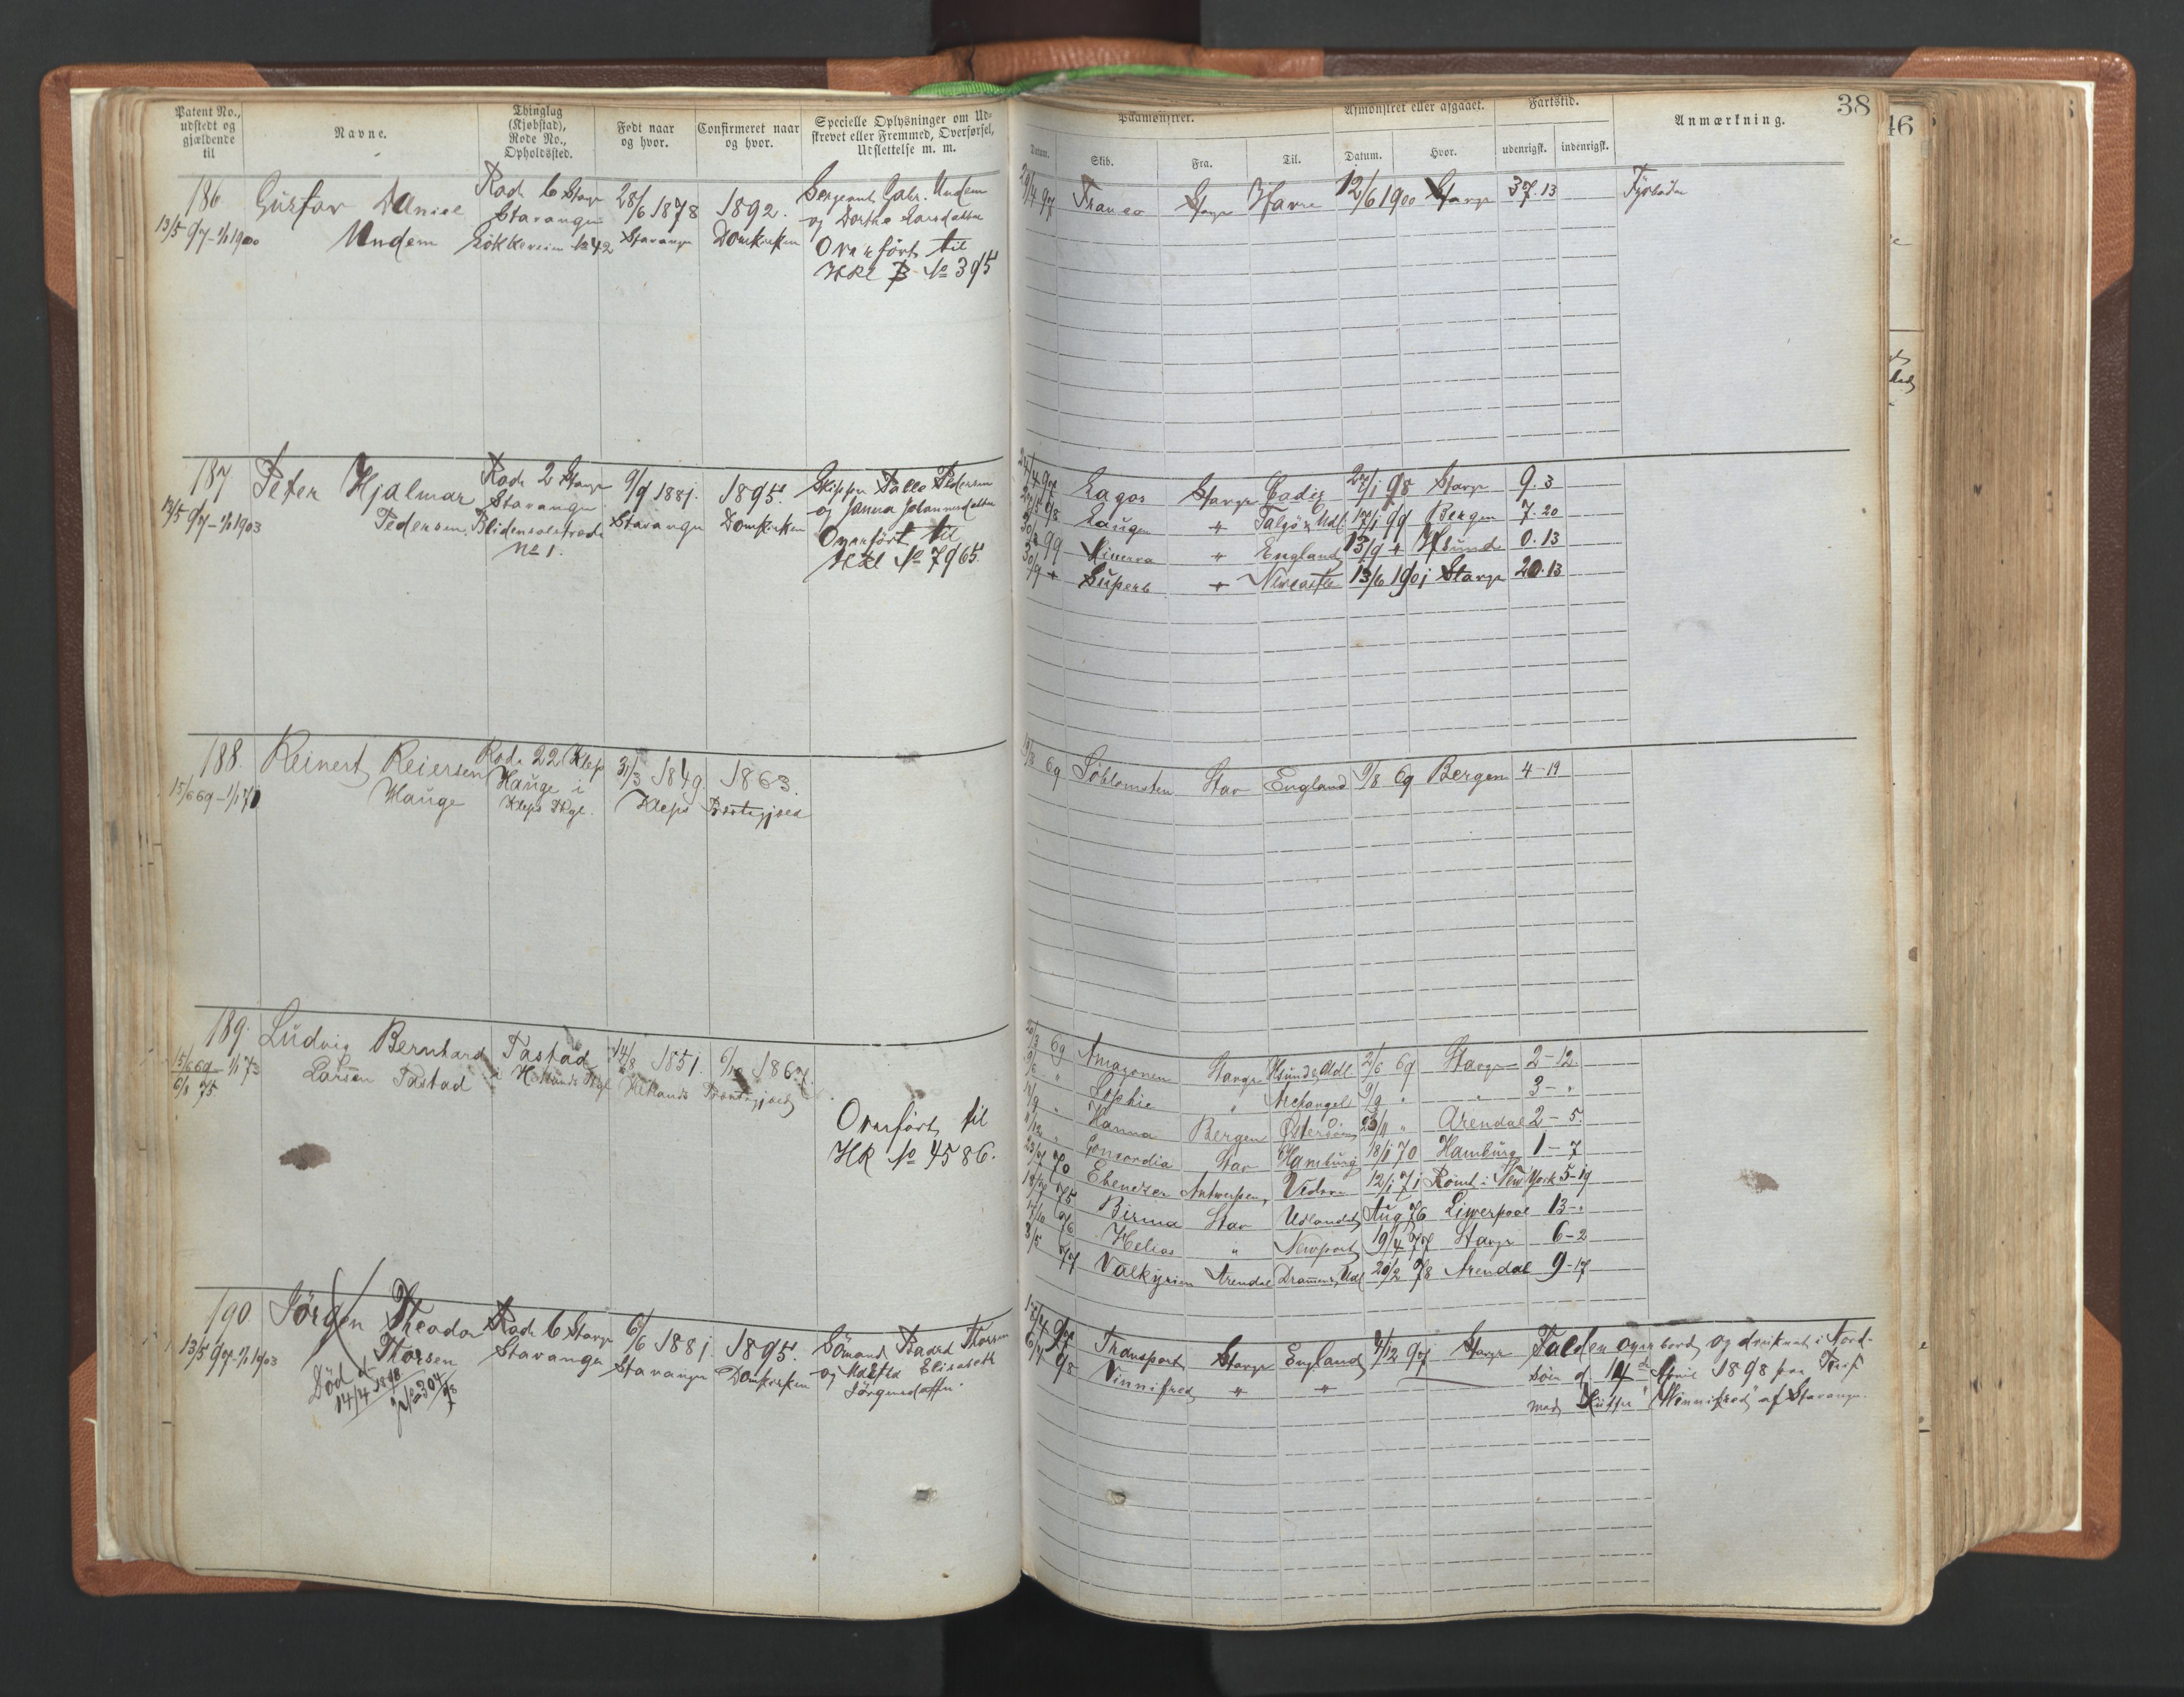 Patent No., udstedt og gjældende til
Navne.
Thinglag (Kjøbstad), Rode No., Opholdssted.
Født naar og hvor.
Confirmeret naar og hvor.
Specielle Oplysninger om Udskrevet eller Fremmed, Overførsel, Udslettelse m. m.
186 Gustav Daniel Rode 6 Stavgr 28/6 1878 1892. Sergeant Gabr. Undem
13/5 97 - 1/1 1900 Undem Stavanger Stavanger Domkirken og Dorthe Larsdatter
Løkkeveien No 42 Overført til
HRl B No 395
187 Peter Hjalmar Rode 2 Stavgr 9/9 1881. 1895. Skipper Palle Pedersen
13/5 97 - 1/1 1903 Pedersen. Stavanger Stavanger Domkirken og Janna Johannesdatter
Blidensolstræde Overført til
No 1. HRl No 7965.
188. Reinert Reiersen Rode 22 Klep 31/3 1849. 1863.
15/6 69 - 1/1 71 Hauge Hauge i Klep Præstegjæld
Kleps Skgl.
189. Ludvig Bernhard Tastad 14/8 1851. 6/10 1867.
15/6 69 - 1/1 73 Larsen Tastad i Hetlands Skgl Hetlands Præstegjæld
6/8 75
Overført til
HR No 4586.
190 Jörgen Theodor Rode 6 Stavgr 6/6 1881 1895. Sömand Thorsen
13/5 97 - 1/1 1903 Thorsen Stavanger Stavanger Domkirken og Elisabeth
Död d. Jörgensdatter
14/4 1898
J No 2304/98
38
Paamønstret.
Afmønstret eller afgaaet.
Fartstid.
Anmærkning.
Datum. Skib. Fra. Til. Datum. Hvor. udenrigsk. indenrigsk.
29/4 97 Franco Stavgr Havre 12/6 1900 Stavgr 37.13 Fyrböder
24/4 97 Lagos Stavgr Cadiz 27/1 98 Stavgr 9.3
27/5 98 Laugen " Talgö & Udl. 17/1 99 Bergen 7.20
99 Minerva " England 13/9 " Hsund 0.13
30/9 " Superb " Newcastle 13/6 1901 Stavgr 20.13
69 Söblomsten Stav England 9/8 69 Bergen 4-19
69 Amazonen Stavgr Hsund & Udl 2/6 69 Stavgr 2-12.
" Sophie " Archangel 9/9 " " 3-"
" Hanna Bergen Østersøen 23/11 " Arendal 2-5.
" Concordia Stav Hamburg 18/1 70 Hamburg 1-7
70 Ebenezer Antwerpen 12/1 71 Römt i New York 5-19
75 Birma Stav Udlandet Aug 76 Liverpool 13-"
76 Helios " Newport 19/4 77 Stavgr 6-2
3/5 77 Valkyrien Arendal Drammen, Udl 20/2 78 Arendal 9-17
97 Transport Stavgr England 4/12 97 Stavgr Falden overbord og druknet i Nord-
6/4 98 Vinnifred " " söen d. 14de April 1898 fra
med Kutter "Winnifred" af Stavanger.
46